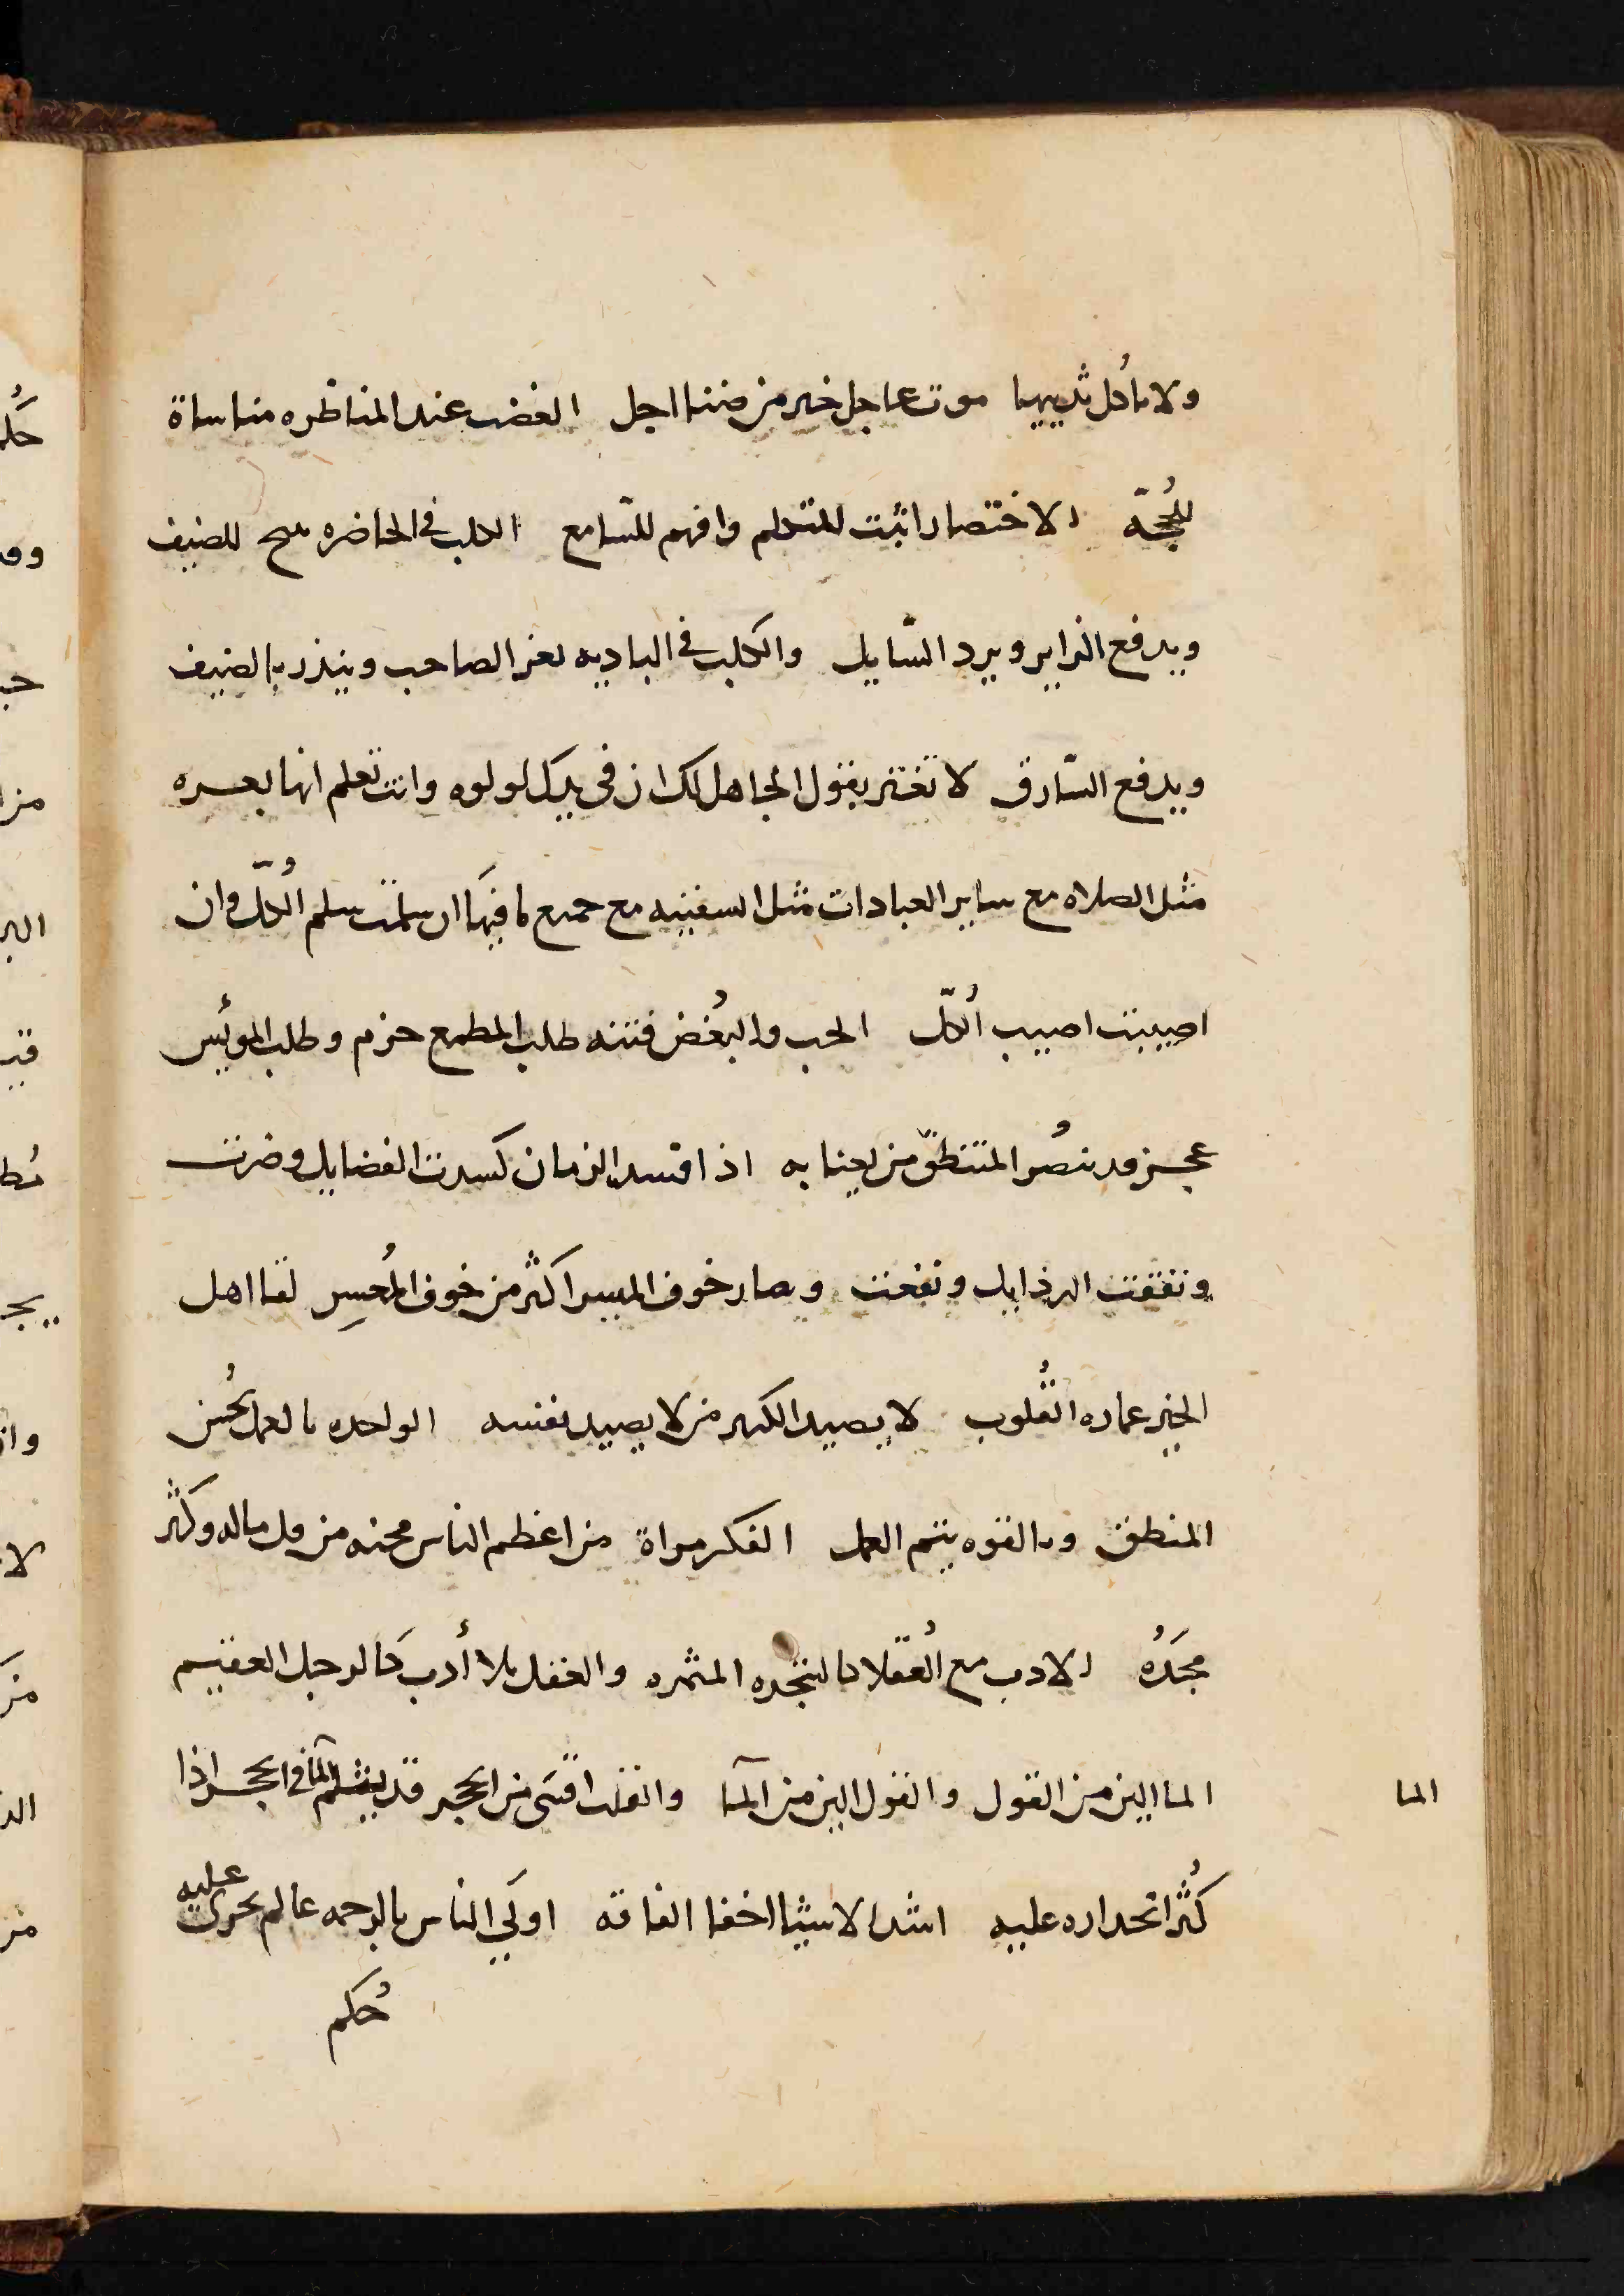 ولا تاكل ثدييها موت عاجل خير من ضنا اجل الغضب عند المناظره منساة
للحُجّه الاختصار اثبت للمتكلم وافهم للسّامع الكلب في الحاضره للضيف
ويدفع الزاير ويرد السّايل والكلب في الباديه الصاحب وينذر بالضيف
ويدفع السّارق لا تغتر بقول الجاهل لك ان في يدك لولوه وانت تعلم انها بعره
مثل الصلاه مع ساير العبادات مثل السفينه مع جميع ما فيهَا ان سلمت سلم الُكلّ وان
اصيبت اصيب الُكلّ الحب والبُغض فتنه طلب المطمع حزم وطلب الموئس
عجز من به اذا فسد الزمان كسدت الفضايل وضرت
ونفقت الرذايل ونفعت وصار خوف الموسر اكثر من خوف المُعسِر لقا اهل
الخير عماره القُلوب لا يصيد الكبير من لا يصيد نفسه بالعمل يحُسن
المنطق وبالقوه يتم العمل الفكر مراة من اعظم الناس محنه من قل ماله وكثر
مجَدُه الادب مع العُقل كالشجره المثمره والعقل بلا أدب كَالرجل العقيم
الما الين من القول والقول الين من المآ والقلب اقسَى من الحجر قد يثلم المآ في الحجر اذا
كثُر انحداره عليه اشد الاشيا اخفا الفاقه اولَي الناس بالرحمه عالم يجري عليه
حُكم
الما